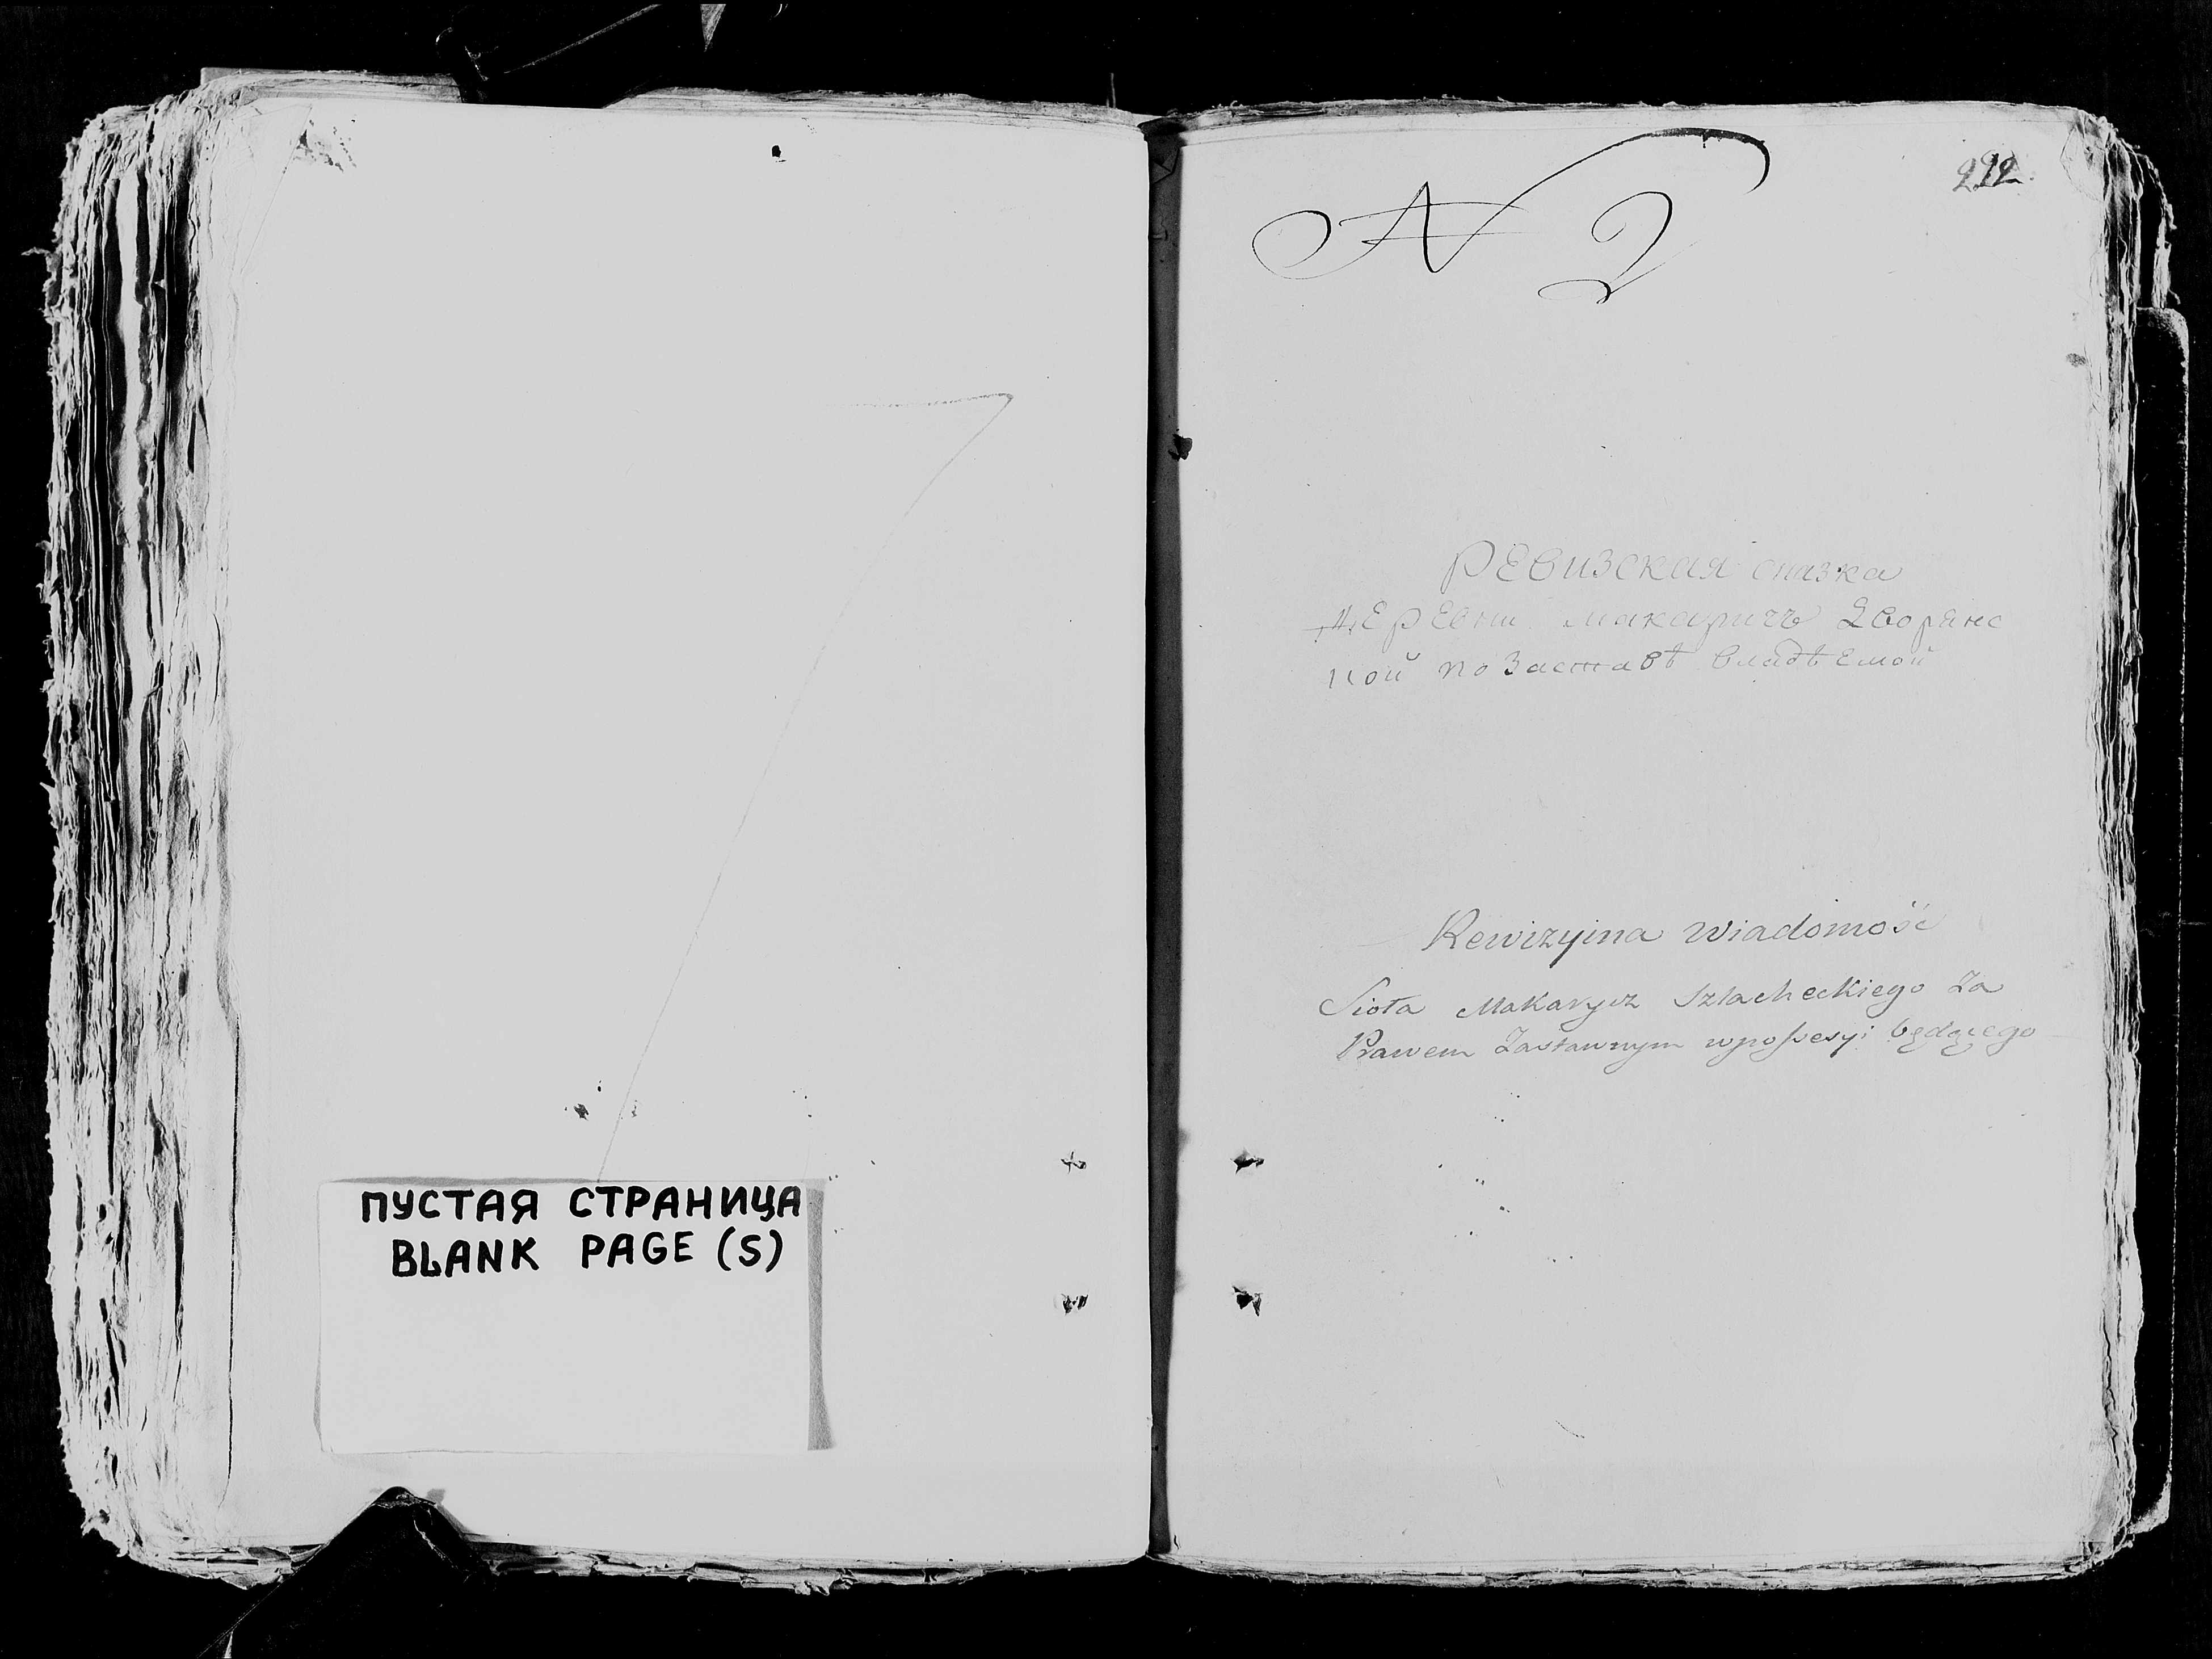 ПУСТАЯ СТРАНИЦА
BLANK PAGE (S)
N 2
Ревизская сказка
Деревни Макаричъ Дворянс
кой по Заставѣ владѣемой
Rewizyina wiadomość
Sioła Makarycz Szlacheckiego Za
Prawem Zastawnym wpossesyi będącego